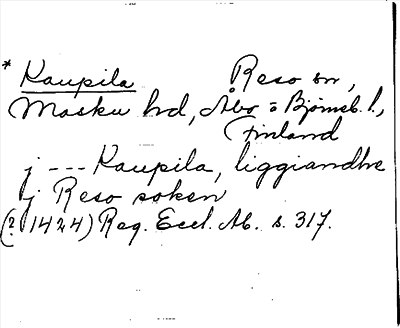 * Kaupila Reso sn,
Masku hd, Åbo o Björneb. l.,
Finland
j --- Kaupila, liggiandhe
j Reso soken
(? 1424) Reg. Eccl. Ab. s. 317.